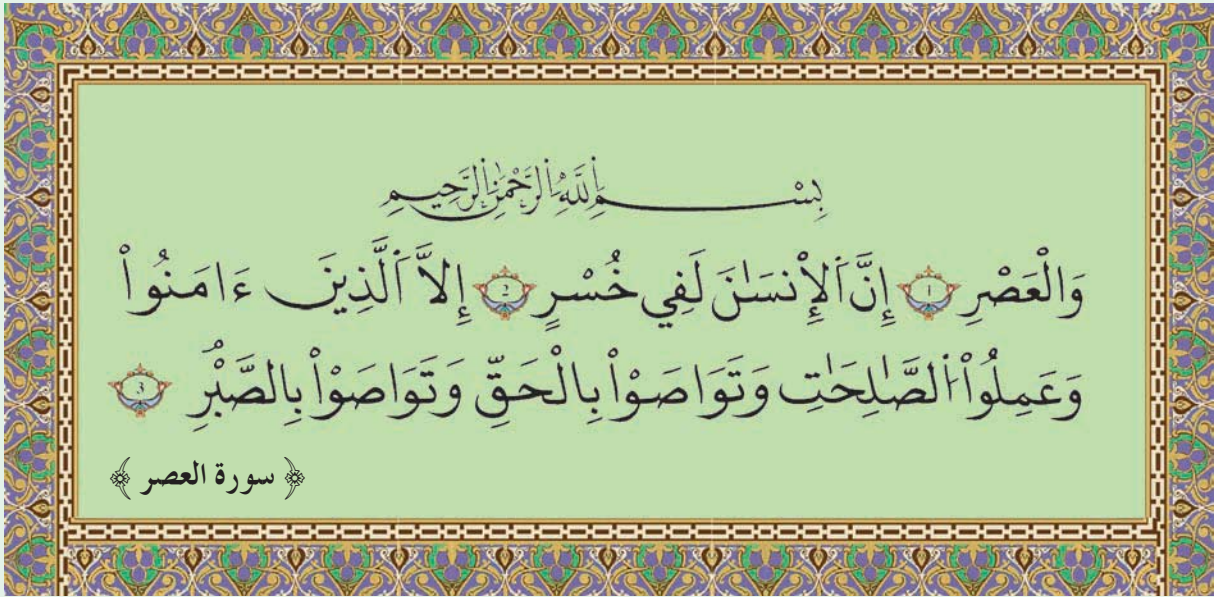 بِسْمِ اللَّهِ الرَّحْمَٰنِ الرَّحِيمِ
وَالْعَصْرِ 1 إِنَّ ٱلْإِنسَٰنَ لَفِي خُسْرٍ 2 إِلاَّ ٱلَّذِينَ ءَامَنُواْ
وَعَمِلُواْ ٱلصَّٰلِحَٰتِ وَتَوَاصَوْاْ بِالْحَقِّ وَتَوَاصَوْاْ بِالصَّبْرِ 3
﴿ سورة العصر ﴾